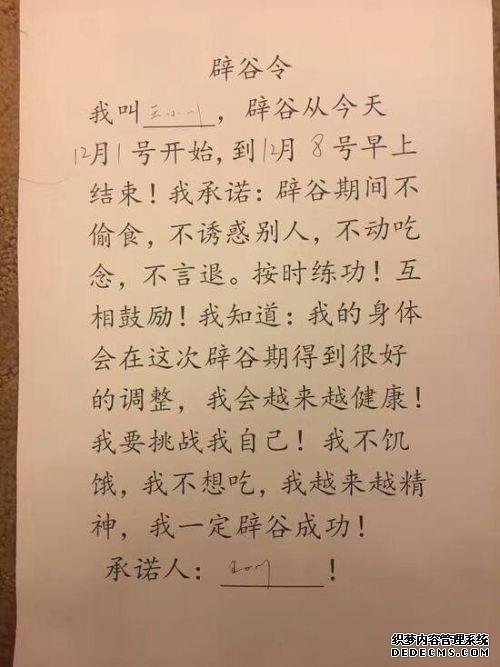 辟谷令
我叫王小川，辟谷从今天
12月1号开始,到12月8号早上
结束！我承诺：辟谷期间不
偷食，不诱惑别人，不动吃
念，不言退。按时练功！互
相鼓励！我知道：我的身体
会在这次辟谷期得到很好
的调整，我会越来越健康！
我要挑战我自己！我不饥
饿，我不想吃，我越来越精
神，我一定辟谷成功！
承诺人：王小川！
织梦内容管理系统
DEDECMS.COM